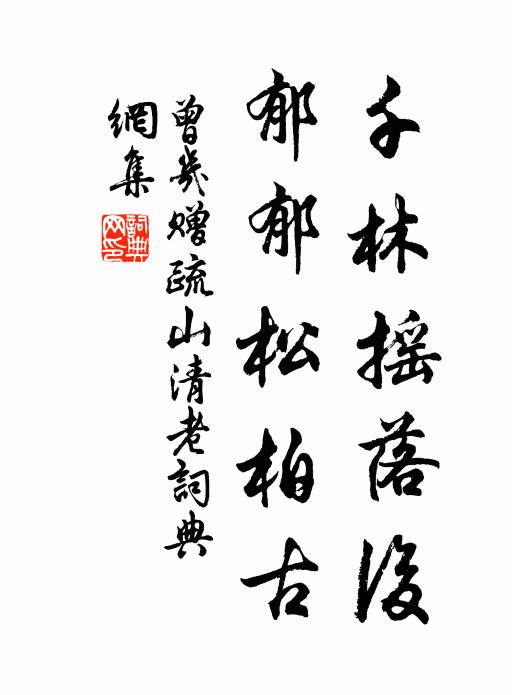 千林摇落後
郁郁松柏古
曾幾贈疏山清老詞典
網集
詞典網印